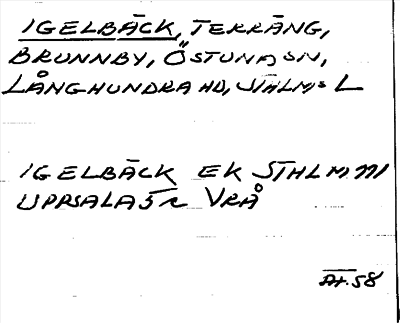 IGELBÄCK, TERRÄNG,
BRUNNBY, ÖSTUNA SN,
LÅNGHUNDRA HD, STHLMS L
IGELBÄCK EK STHLM
UPPSALA 5 VRÅ
58